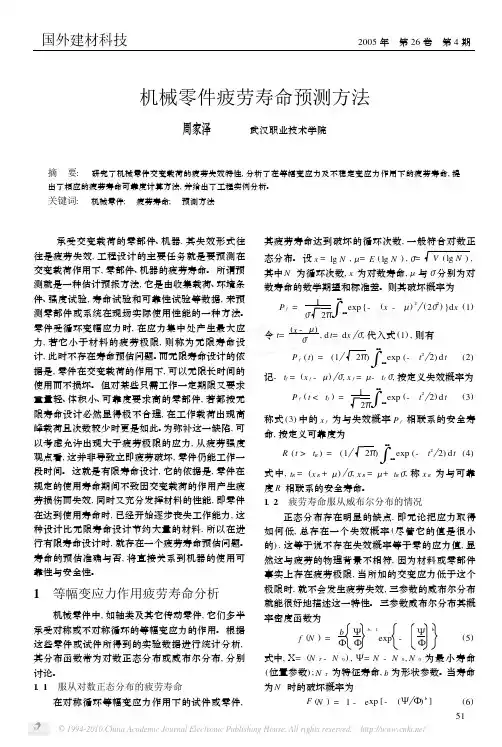 国外建材科技
2005 年 第26 卷 第4 期
机械零件疲劳寿命预测方法
周家泽 武汉职业技术学院
摘 要: 研究了机械零件交变载荷的疲劳失效特性, 分析了在等幅变应力及不稳定变应力作用下的疲劳寿命, 提
出了相应的疲劳寿命可靠度计算方法, 并给出了工程实例分析。
关键词: 机械零件; 疲劳寿命; 预测方法
承受交变载荷的零部件、机器, 其失效形式往
往是疲劳失效, 工程设计的主要任务就是要预测在
交变载荷作用下, 零部件、机器的疲劳寿命。所谓预
测就是一种估计预报方法, 它是由收集载荷、环境条
件、强度试验、寿命试验和可靠性试验等数据, 来预
测零部件或系统在现场实际使用性能的一种方法。
零件受循环变幅应力时, 在应力集中处产生最大应
力, 若它小于材料的疲劳极限, 则称为无限寿命设
计, 此时不存在寿命预估问题。而无限寿命设计的依
据是, 零件在交变载荷的作用下, 可以无限长时间的
使用而不损坏。但对某些只需工作一定期限又要求
重量轻、体积小、可靠度要求高的零部件, 若都按无
限寿命设计必然显得极不合理, 在工作载荷出现高
峰载荷且次数较少时更是如此。为弥补这一缺陷, 可
以考虑允许出现大于疲劳极限的应力, 从疲劳强度
观点看, 这并非导致立即疲劳破坏, 零件仍能工作一
段时间。这就是有限寿命设计, 它的依据是, 零件在
规定的使用寿命期间不致因交变载荷的作用产生疲
劳损伤而失效, 同时又充分发挥材料的性能, 即零件
在达到使用寿命时, 已经开始逐步丧失工作能力, 这
种设计比无限寿命设计节约大量的材料, 所以在进
行有限寿命设计时, 就存在一个疲劳寿命预估问题。
寿命的预估准确与否, 将直接关系到机器的使用可
靠性与安全性。
1 等幅变应力作用疲劳寿命分析
机械零件中, 如轴类及其它传动零件, 它们多半
承受对称或不对称循环的等幅变应力的作用。根据
这些零件或试件所得到的实验数据进行统计分析,
其分布函数常为对数正态分布或威布尔分布, 分别
讨论。
1 1 服从对数正态分布的疲劳寿命
在对称循环等幅变应力作用下的试件或零件,
其疲劳寿命达到破坏的循环次数, 一般符合对数正
态分布。设 x = lg N , μ= E (lg N ), σ= √V (lg N ),
其中N 为循环次数, x 为对数寿命, μ 与 σ 分别为对
数寿命的数学期望和标准差。则其破坏概率为
exp [- (x - μ)²/(2σ²) ]dx (1)
令 t= (x - μ)/σ, dt= dx /σ, 代入式(1), 则有
exp (- t²/2) dt (2)
按定义失效概率为
exp (- t²/2) dt (3)
称式(3) 中的 x f 为与失效概率 P f 相联系的安全寿
命, 按定义可靠度为
exp (- t²/2) dt (4)
式中, tR = (x R + μ) /σ, x R = μ+ tR σ, 称 x R 为与可靠
度 R 相联系的安全寿命。
1 2 疲劳寿命服从威布尔分布的情况
正态分布存在明显的缺点, 即无论把应力取得
如何低, 总存在一个失效概率(尽管它的值是很小
的), 这等于说不存在失效概率等于零的应力值, 显
然这与疲劳的物理背景不相符, 因为材料或零部件
事实上存在疲劳极限, 当所加的交变应力低于这个
极限时, 就不会发生疲劳失效, 三参数的威布尔分布
就能很好地描述这一特性。三参数威布尔分布其概
率密度函数为
(5)
N 0 为最小寿命
(位置参数); N T 为特征寿命, b 为形状参数。当寿命
为N 时的破坏概率为
F (N ) = 1 - exp [- (Ψ/Φ) b ] (6)
51
© 1994-2010 China Academic Journal Electronic Publishing House. All rights reserved. http://www.cnki.net